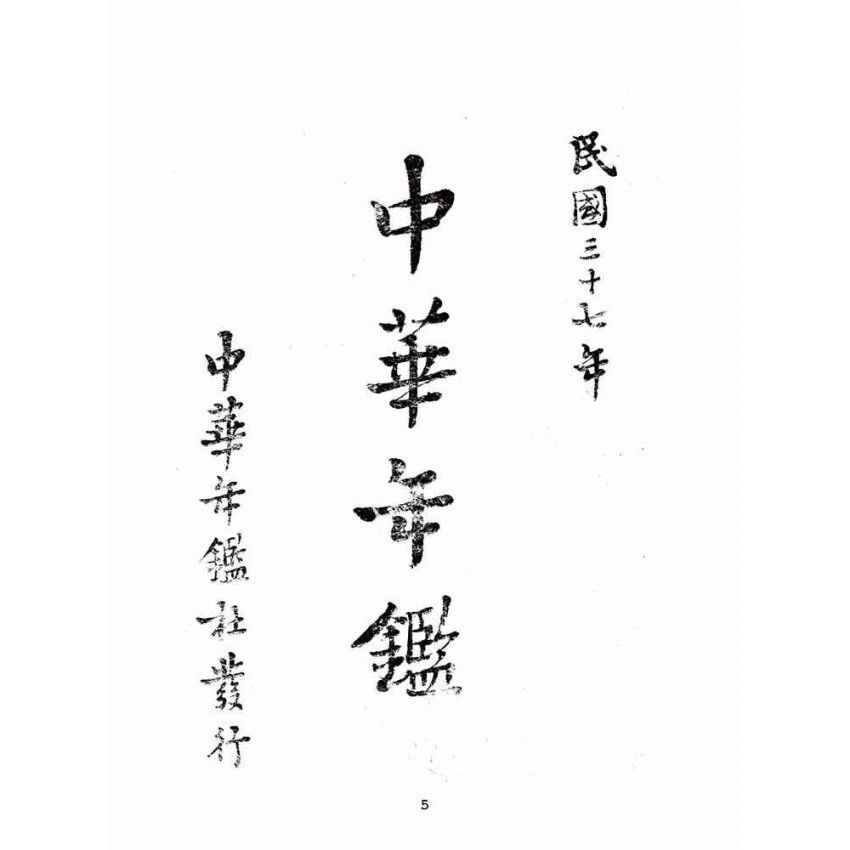 民國三十七年
中華年鑑
中華年鑑社發行
5